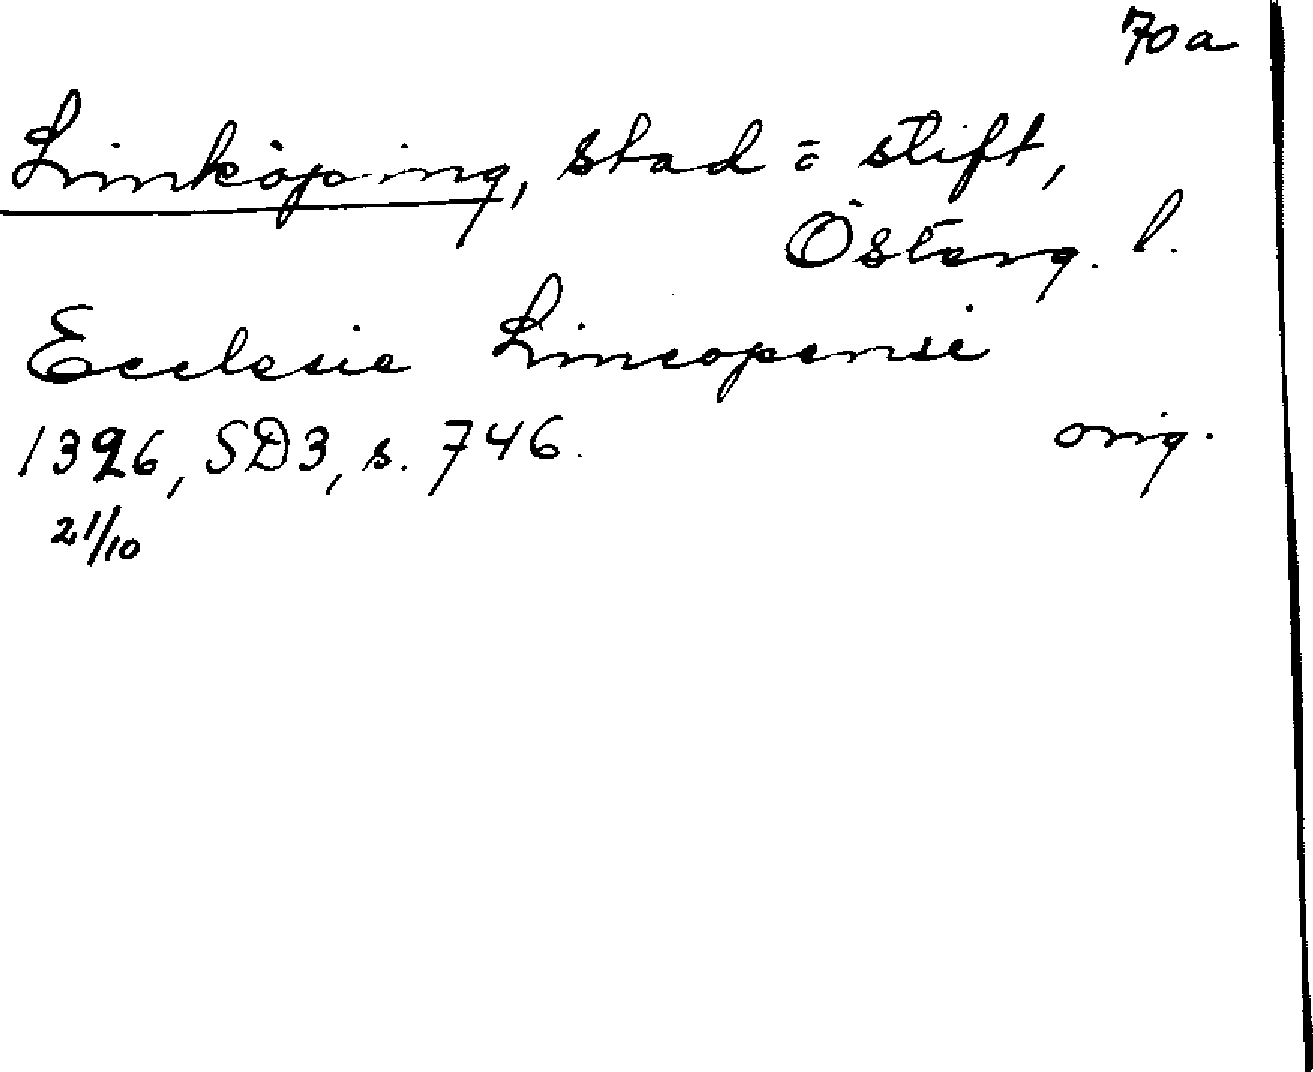 70a
Linköping, stad o. stift,
Österg. l.
Ecclesie Lincopensi
1326, SD3, s. 746. orig.
21/10